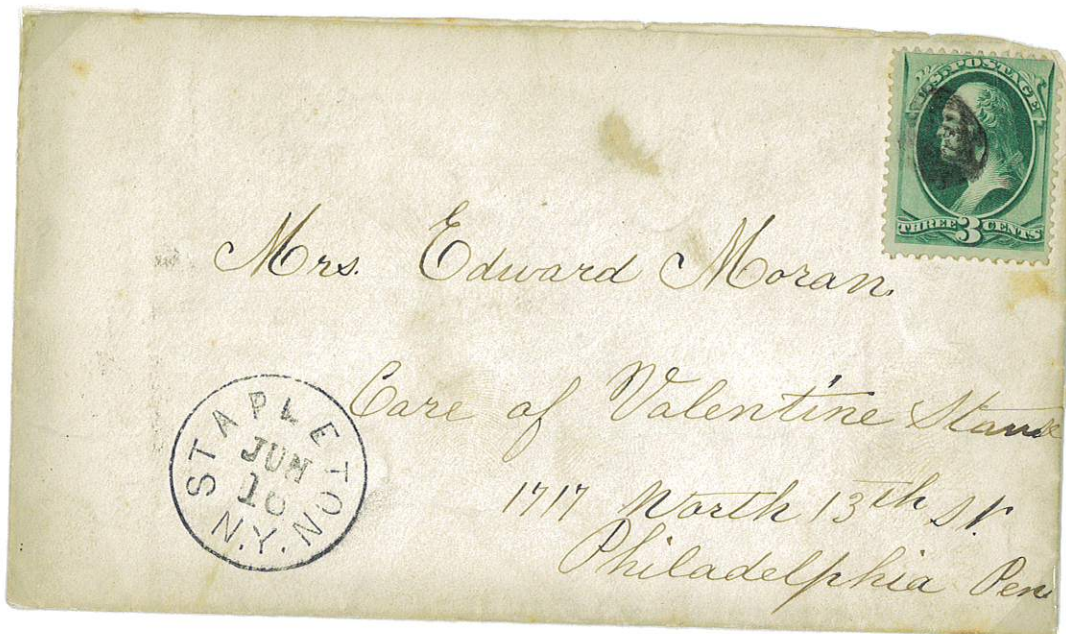 U.S. POSTAGE
THREE 3 CENTS
Mrs. Edward Moran.
Care of Valentine
1717 North 13th St.
Philadelphia Pen
STAPLETON
JUN
10
N.Y.